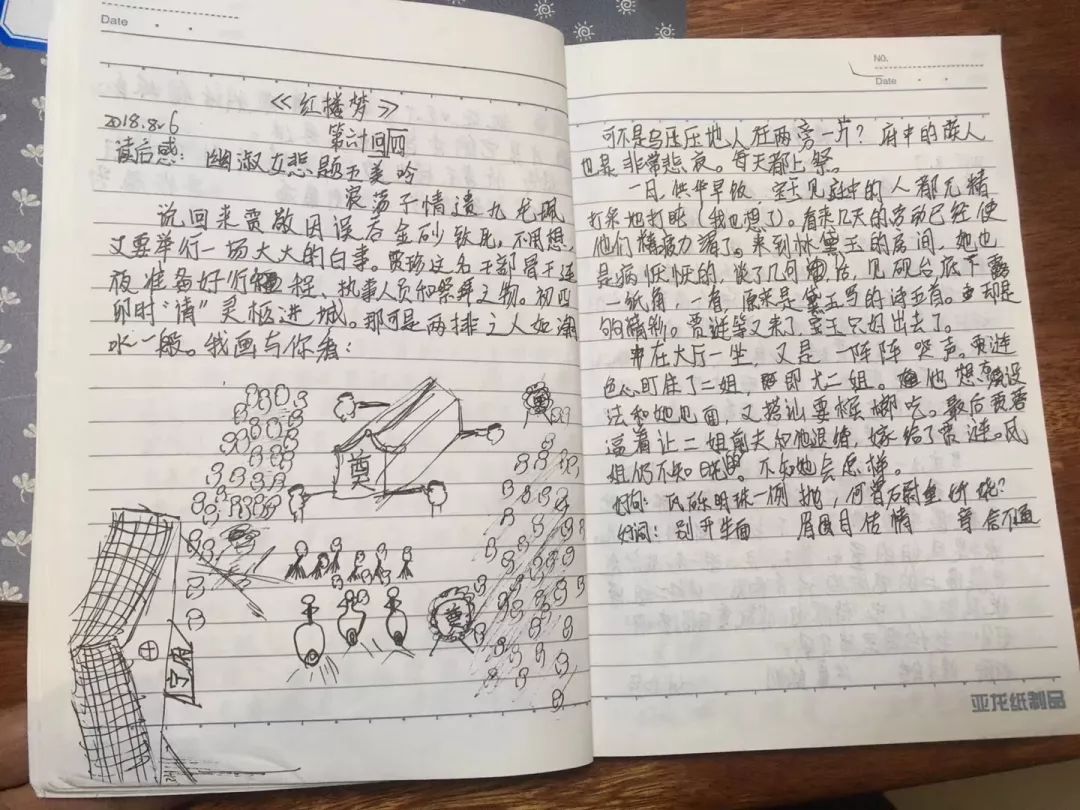 Date
《红楼梦》
2018.8.6
第六十四回
读后感: 幽淑女悲题五美吟
浪荡子情遗九龙佩
说回来贾敬因误吞金砂致死,不用想,
又要举行一场大大的白事。贾珍这名干部骨干连
夜准备好行程、执事人员和祭拜之物。初四
卯时“请”灵柩进城。那可是两排之人如潮
水一般。我画与你看:
奠
奠
宁府
No.
Date
可不是乌压压地人在两旁一片?府中的族人
也是非常悲哀。每天都上祭。
一日,供毕早饭,宝玉见庭中的人都无精
打采地打盹(我也想了)。看来几天的劳动已经使
他们精疲力竭了。来到林黛玉的房间,她也
是病恹恹的,谈了几句话,见砚台底下露
一纸角,一看,原来是黛玉写的诗五首。却是
的精彩。贾琏等又来了,宝玉只好出去了。
在大厅一坐,又是一阵阵哭声。贾琏
色心盯住了二姐,即尤二姐。他想方设
法和她见面,又搭讪要槟榔吃。最后贾蓉
逼着让二姐前夫和他退婚,嫁给了贾琏。凤
姐仍不知晓。不知她会怎样。
好句: 瓦砾明珠一例抛,何曾石尉重娇娆?
好词: 别开生面 眉目传情 音信不通
亚龙纸制品